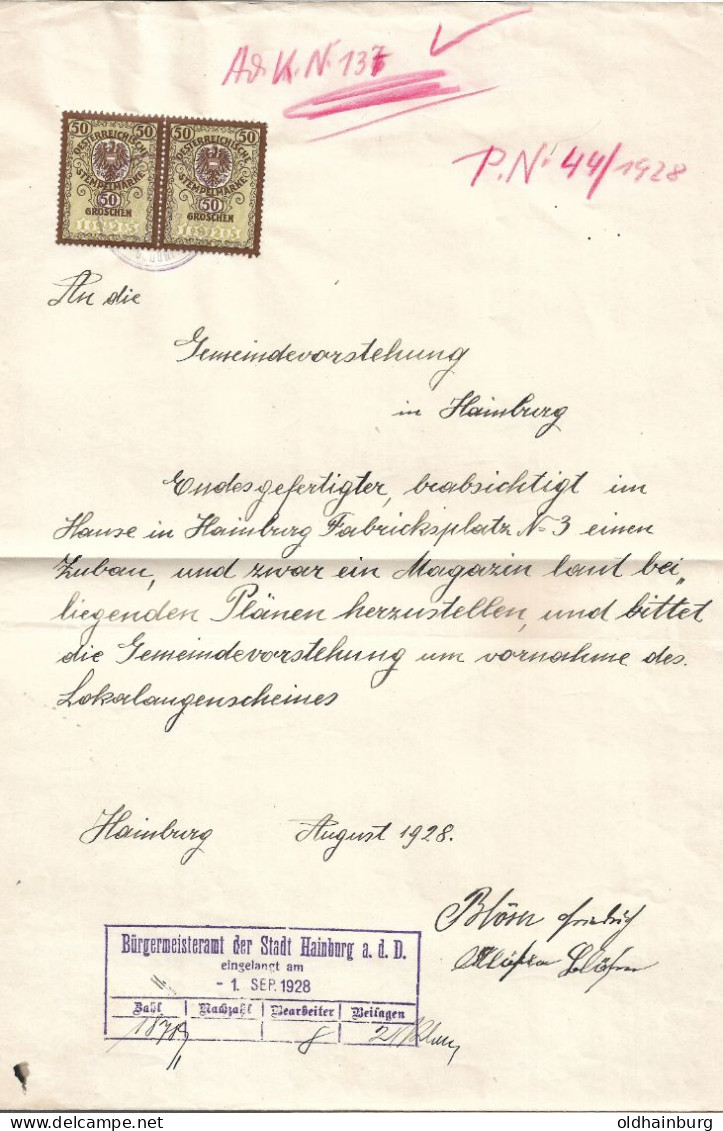 Ad. K. N. 137
P. Nº 44/1928
50 50 50 50
OESTERREICHISCHE OESTERREICHISCHE
STEMPELMARKE STEMPELMARKE
50 50
GROSCHEN GROSCHEN
1925 1925
An die
Gemeindevorstehung
in Hainburg
Endesgefertigter, beabsichtigt im
Hause in Hainburg Fabricksplatz N=3 einen
Zubau, und zwar ein Magazin laut bei„
liegenden Plänen herzustellen, und bittet
die Gemeindevorstehung um vornahme des
Lokalaugenscheines
Hainburg August 1928.
Blösn Friedrich
Bürgermeisteramt der Stadt Hainburg a. d. D.
eingelangt am
- 1. SEP. 1928
Zahl Nachzahl Bearbeiter Beilagen
oldhainburg